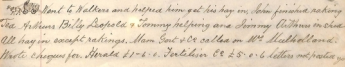 Went to Walkers and helped him get his hay in. John finished raking
Ted Arthurs Billy Leopold & Tommy helping and Jimmy Arthurs in shed
All hay in except rakings. Mam Gert & Co called on Mrs Mulholland.
Wrote cheques for Herald £1-6-0. Fertilizer Co £5-0-6 letters not posted